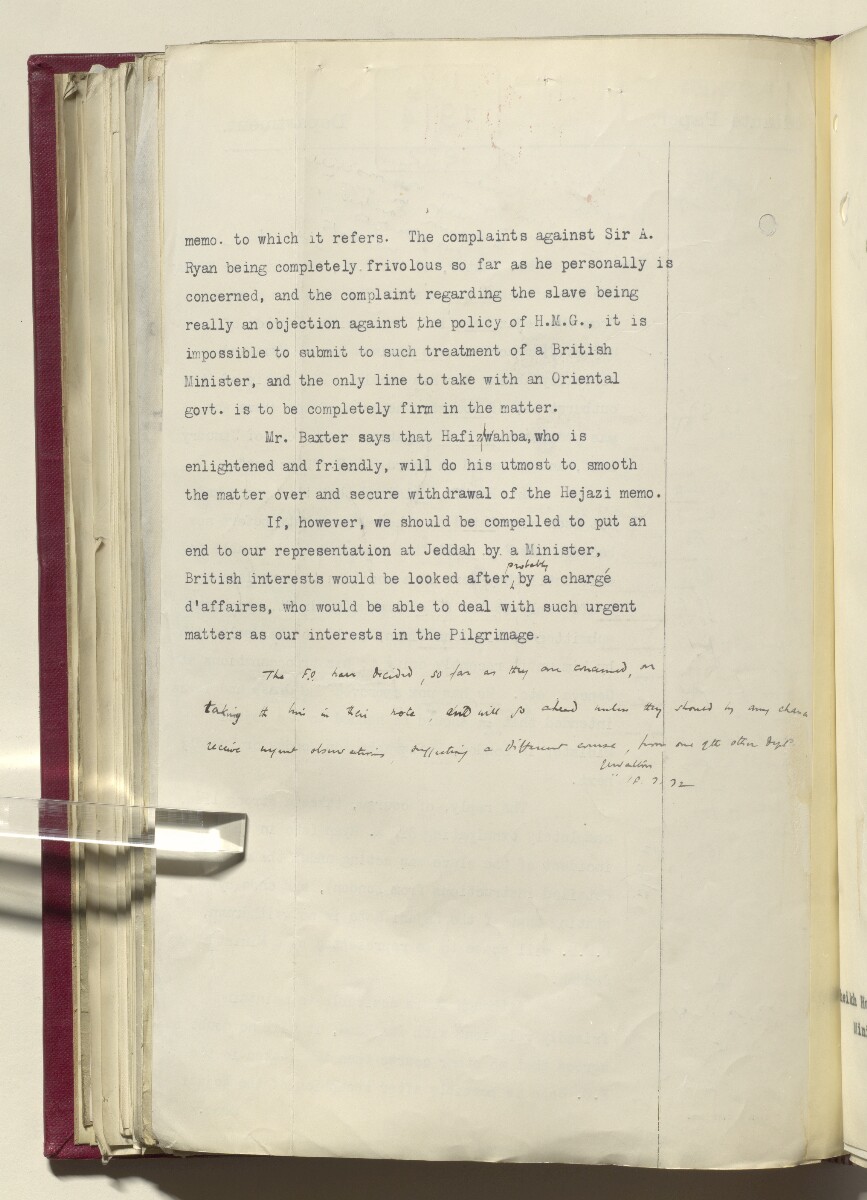 memo. to which it refers. The complaints against Sir A.
Ryan being completely frivolous so far as he personally is
concerned, and the complaint regarding the slave being
really an objection against the policy of H.M.G., it is
impossible to submit to such treatment of a British
Minister, and the only line to take with an Oriental
govt. is to be completely firm in the matter.
Mr. Baxter says that Hafiz|Wahba, who is
enlightened and friendly, will do his utmost to smooth
the matter over and secure withdrawal of the Hejazi memo.
If, however, we should be compelled to put an
end to our representation at Jeddah by a Minister,
probably
British interests would be looked after by a chargé
d'affaires, who would be able to deal with such urgent
matters as our interests in the Pilgrimage.
The F.O. have decided, so far as they are concerned, on
taking the line in their note, and will go ahead unless they should by any chance
receive urgent observations, suggesting a different course, from one of the other Depts.
3. 32
heikh H
Min